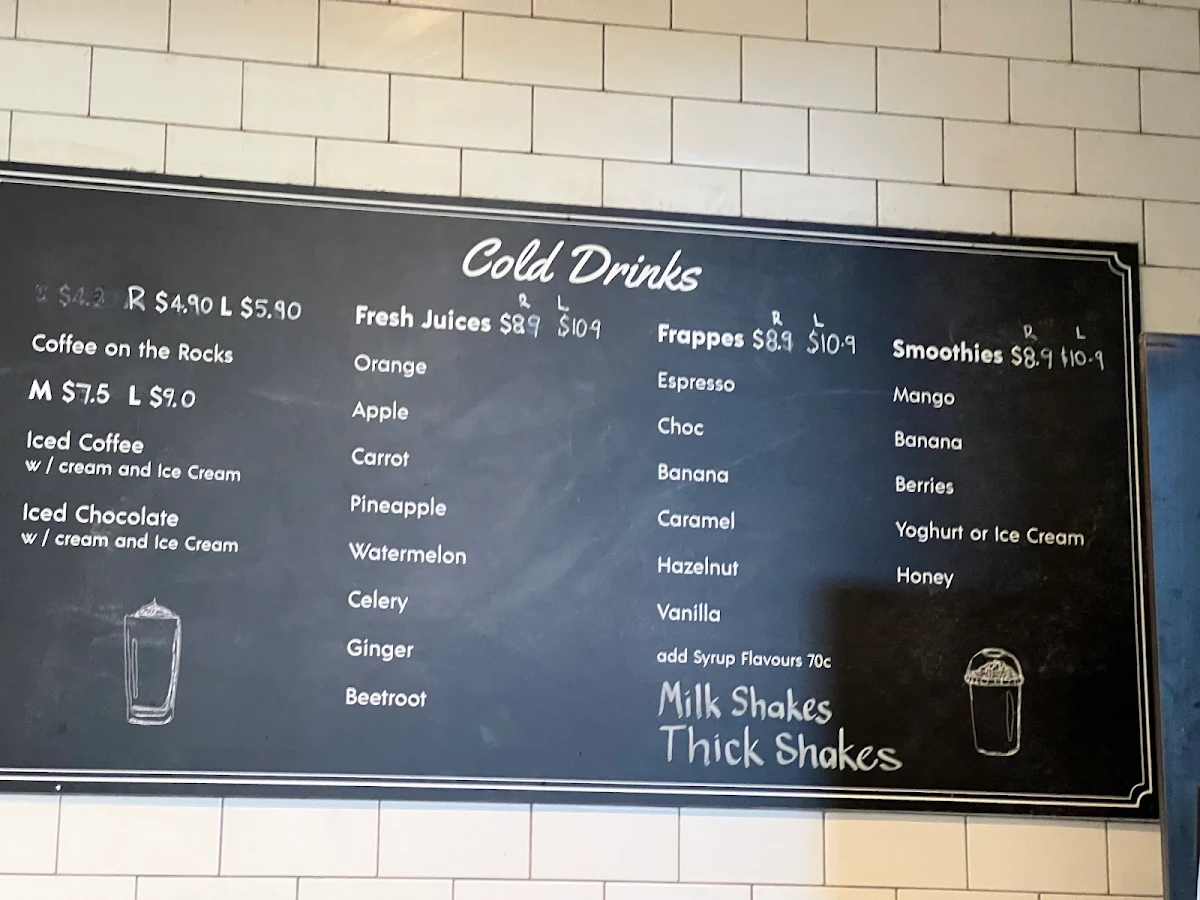 Cold Drinks
R $4.90 L $5.90
Coffee on the Rocks
M $7.5 L $9.0
Iced Coffee
w / cream and Ice Cream
Iced Chocolate
w / cream and Ice Cream
R L
Fresh Juices $89 $10.9
Orange
Apple
Carrot
Pineapple
Watermelon
Celery
Ginger
Beetroot
R L
Frappes $8.9 $10.9
Espresso
Choc
Banana
Caramel
Hazelnut
Vanilla
add Syrup Flavours 70c
Milk Shakes
Thick Shakes
R L
Smoothies $8.9 $10.9
Mango
Banana
Berries
Yoghurt or Ice Cream
Honey